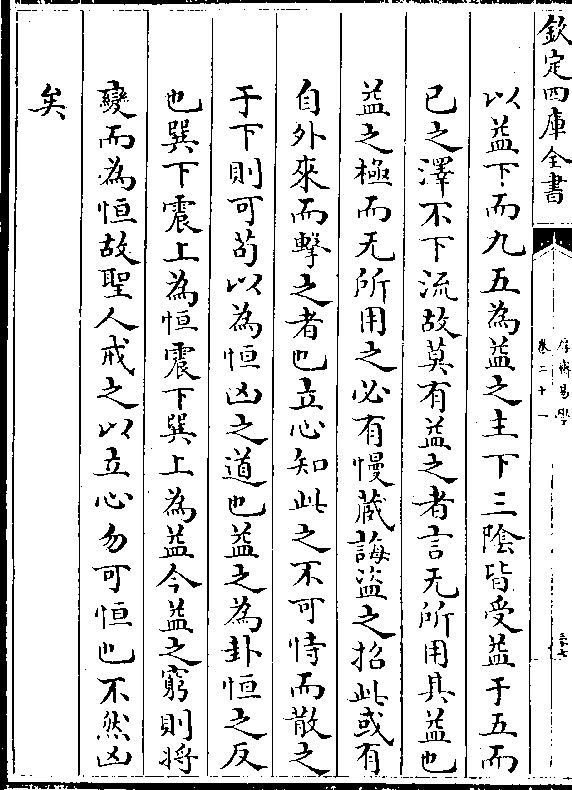 欽定四庫全書
厚齋易學
卷二十一
以益下而九五為益之主下三陰皆受益于五而
已之澤不下流故莫有益之者言无所用其益也
益之極而无所用之必有慢藏誨盜之招此或有
自外來而擊之者也立心知此之不可恃而散之
于下則可苟以為恒凶之道也益之為卦恒之反
也巽下震上為恒震下巽上為益今益之窮則將
變而為恒故聖人戒之以立心勿可恒也不然凶
矣